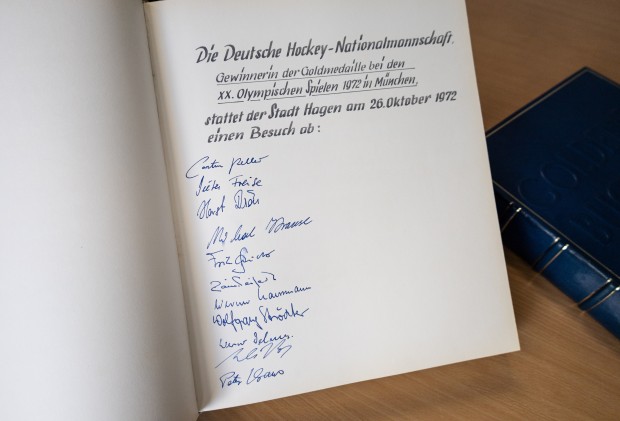 Die Deutsche Hockey-Nationalmannschaft,
Gewinnerin der Goldmedaille bei den
XX. Olympischen Spielen 1972 in München,
stattet der Stadt Hagen am 26. Oktober 1972
einen Besuch ab:
Carsten Keller
Dieter Freise
Horst Dröse
Michael Krause
Fritz Schmidt
Werner Kaessmann
Wolfgang Strödter
Peter Kraus